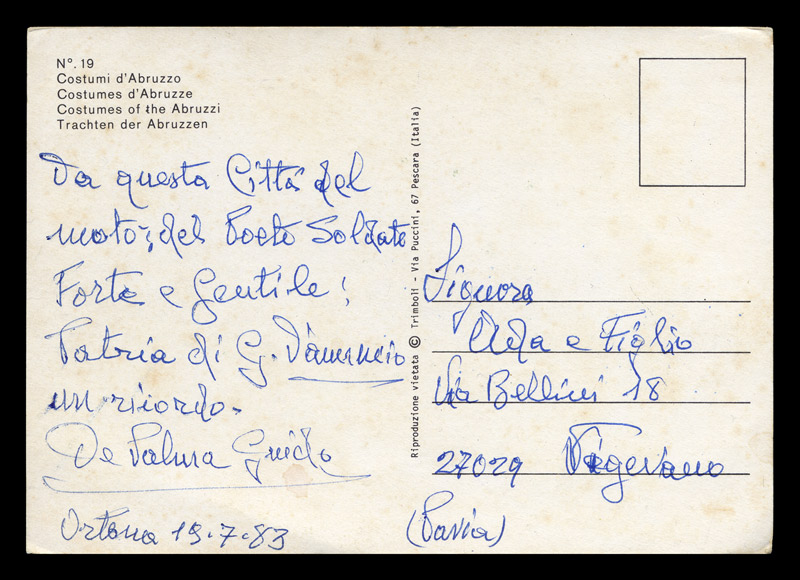 Nº. 19
Costumi d'Abruzzo
Costumes d'Abruzze
Costumes of the Abruzzi
Trachten der Abruzzen
Da questa Città del
moto, del Poeta Soldato
Forte e Gentile!
Patria di G. D'annunzio
un ricordo.
De Palma Guido
Ortona 19.7.83
Riproduzione vietata © Trimboli - Via Puccini, 67 Pescara (Italia)
Signora
Ada e Figlio
Via Bellini 18
27029 Vigevano
(Pavia)